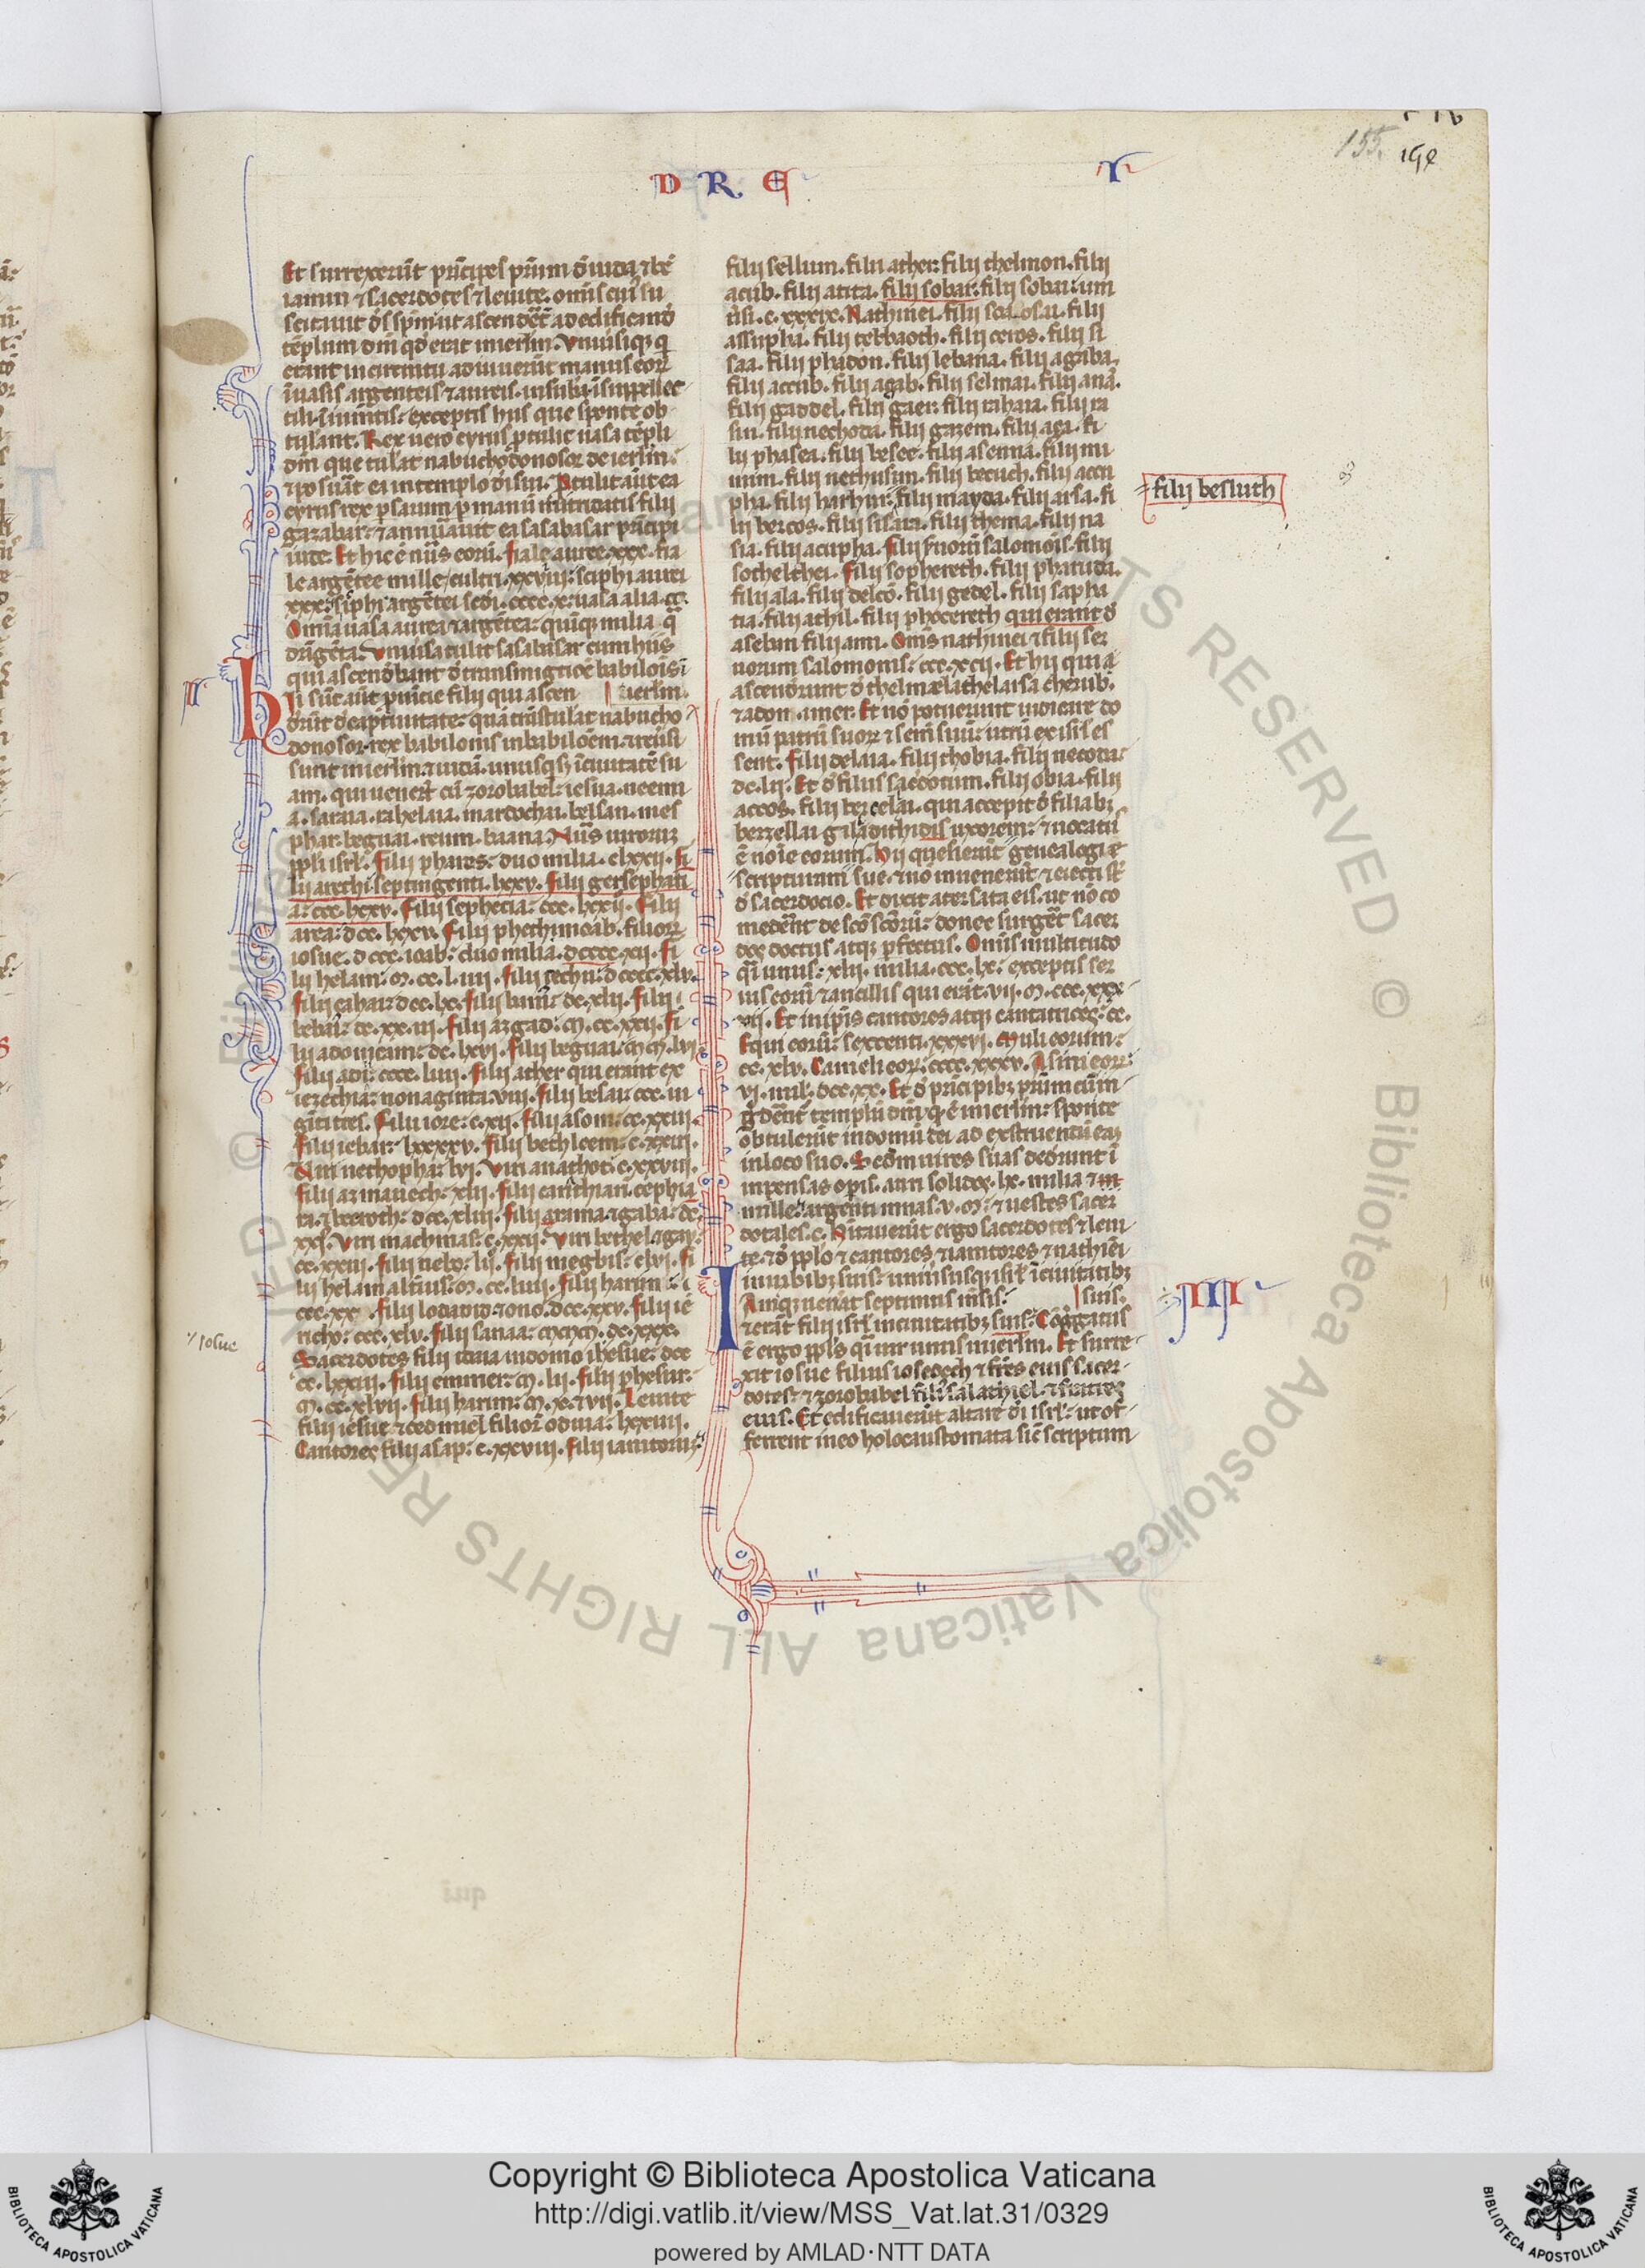 155.
D R E
I
Et surrexerūt prīcipes pr̄um d̄ iuda ⁊ bē
iamin ⁊ sacerdotes ⁊ leuite. omīs cui' su
scitauit d̄s sp̄m ut ascendēt ad edificand̄
tēplum dn̄i qd̄ erat in ierl̄m. Vniuisiqꝫ q
erant in circuitu adiuuerūt manus eoꝝ
tulant. Rex uero cyrus ꝓtulit uasa tēpli
dn̄i que tulāt nabuchodonosor de ierl̄m.
⁊ posuāt ea in templo d̄i sui. Ptulit aūt ea
cyrus rex ꝑsarum ꝑ manū mitridatis filii
gazabar. ⁊ annūauit ea sasabasar prīcipi
iude. Et hic ē nūs eoꝝ. Fiale auree. xxx. fia
le argētee mille. cultri. xxviiii. sciphi aurei
xxx. sciphi argētei scd̄i. cccc. x. uasa alia. ꝏ.
Omīa uasa aurea ⁊ argētea. quīqꝫ milia. q̄
drīgēta. Vniuisa tulit sasabasar cum hiis
qui ascendebant d̄ transmigͣtiōe babilois ī
II
Hi sūt aūt ꝓuincie filii qui ascen | ierl̄m.
derūt d̄ captiuitate. quā trāstulat nabucho
donosor rex babilonis in babilōem. ⁊ reūsi
sunt in ierl̄m ⁊ iudā. unusqͥsqꝫ ī ciuitatē su
am. qui uenert̄ cū zorobabel. iesua. neemi
a. saraia. rahelaia. mardochai. belsan. mes
phar. beguai. reum. baana. Nūs uiroruꝫ
ppl̄i isrl̄. filii phares. duo milia. clxxii. fi
lii arethi. septingenti. lxxv. filii gersephati
a. ccc. lxxv. filii sephecia. ccc. lxxii. filii
area. dcc. lxxv. filii phethmoab. filioꝝ
iosue. dccc. ioab. duo milia. dcccc. xii. fi
lii helam. M. cc. l. iiii. filii zechu. dcccc. xlv.
filii zahai. dcc. lx. filii banni. dc. xlii. filii
bebai. cc. xx. iii. filii azgad. M. cc. xxii. fi
lii adonicam. dc. lxvi. filii beguai. MM. lvi.
filii adū. cccc. liiii. filii ather qui erant ex
iezechia. nonaginta. viii. filii besai. ccc. ui
gīti tres. filii iore. c. xii. filii asom. cc. xxiii.
filii iebar. lxxxxv. filii bethleem. c. xxiii.
Viri nethopha. lvi. Viri anathot. c. xxviii.
filii azmaueth. xlii. filii cariathiarī. cephia
ra. ⁊ beeroth. dcc. xliii. filii arama. ⁊ gaba. dc.
xxi. Viri machmas. c. xxii. Viri bethel ⁊ gay.
cc. xxiii. filii nebo. lii. filii megbis. clvi. fi
lii helam alterius. M. cc. liiii. filii harim.
ccc. xx. filii lodadid ⁊ ono. dcc. xxv. filii ie
richo. ccc. xlv. filii sanaa. MMM. dc. xxx.
iosue
Sacerdotes filii idaia in domo ihesue. dcc
cc. lxxiii. filii emmer. M. lii. filii phesur.
M. cc. xlvii. filii harim. M. xc. ⁊ vii. Leuite
filii iesue ⁊ cedmiel filioꝝ oduia. lxxiiii.
Cantores filii asap. c. xxviii. filii ianitorū.
filii sellum. filii ather. filii thelmon. filii
acub. filii atita. filii sobar. filii sobai. um
ūsi. c. xxxix. Nathinei. filii
assupha. filii tebbaoth. filii ceros. filii si
saa. filii phadon. filii lebana. filii agaba.
filii accub. filii agab. filii selmai. filii anā.
filii gaddel. filii gaer. filii rahaia. filii ra
sin. filii nechoda. filii gazem. filii aza. fi
lii phasea. filii besee. filii asenna. filii mu
nim. filii nethusim. filii becuch. filii accu
pha. filii harhur. filii mayda. filii arsa. fi
filii besluth
lii bercos. filii sisara. filii thema. filii na
sia. filii acupha. filii s̄uorū salomōis. filii
sothelthei. filii sophereth. filii pharuda.
filii ala. filii delcō. filii gedel. filii sapha
tia. filii athil. filii phocereth qui erant d̄
asebim filii ami. Omīs nathinei ⁊ filii ser
uorum salomonis. ccc. xcii. Et hii qui a
ascenderunt d̄ thelmela. thelarsa. cherub.
⁊ adon. ⁊ mer. Et nō potuerunt indicare do
mū patrū suoꝝ ⁊ semē suū. utrū ex isrl̄ es
sent. filii delaia. filii thobia. filii necoda.
dc. lii. Et d̄ filiis sacerdotum. filii obia. filii
accos. filii berzelai. qui accepit d̄ filiabꝫ
berzellai galaadithidis uxorem. ⁊ uocatus
ē noīe eorum. Hii quesierūt genealogie
scripturam sue. ⁊ nō inuenerūt ⁊ eiecti st̄
d̄ sacerdocio. Et dixit atersata eis. ut nō co
medent̄ de scō scōrū. donec surgēt sacer
dos doctus atqꝫ ꝑfectus. Omīs multitudo
q̄i unus. xlii. milia. ccc. lx. exceptis ser
uis eorū ⁊ ancillis qui erāt. vii. M. ccc. xxx
vii. Et in ipīs cantores atqꝫ cantatrices. cc.
Equi eorū. sexcenti. xxxvi. Muli eorum.
cc. xlv. Cameli eoꝝ. cccc. xxxv. Asini eoꝝ.
vi. mil. dcc. xx. Et d̄ prīcipibꝫ pr̄um cūm
gͥderēt templū dn̄i qd̄ ē in ierl̄m. sponte
obtulerūt in domū dei ad exstruendū eaꝫ
in loco suo. Scdm uires suas dederunt ī
inpensas opis. auri solidos. lx. milia ⁊ m
mille. argenti mnas. v. M. ⁊ uestes sacer
dotales. c. Hitauerūt ergo sacerdotes ⁊ leui
te. ⁊ d̄ ppl̄o ⁊ cantores ⁊ ianitores ⁊ nathiēi
in urbibꝫ suis. uniuisusqꝫ isrl̄ ī ciuitatibꝫ
III
Iamqꝫ uenāt septimus mēsis. | suis.
⁊ erāt filii isrl̄ in ciuitatibꝫ suis. Cōgͤgatus
ē ergo ppl̄s q̄i uir unus in ierl̄m. Et surre
xit iosue filius iosedech ⁊ fr̄es eius sacer
dotes. ⁊ zorobabel fili' salathiel. ⁊ fratres
eius. Et edificauerūt altare d̄i isrl̄. ut of
ferrent in eo holocaustomata sic̄ scriptum
Copyright © Biblioteca Apostolica Vaticana
http://digi.vatlib.it/view/MSS_Vat.lat.31/0329
powered by AMLAD·NTT DATA
BIBLIOTECA APOSTOLICA VATICANA
BIBLIOTECA APOSTOLICA VATICANA